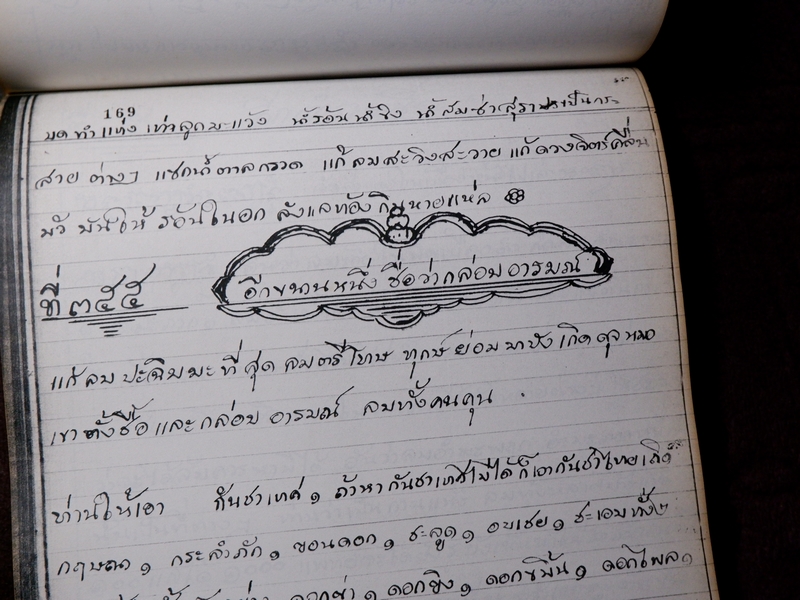 169
บด ทำแท่ง เท่าลูกมะแว้ง น้ำร้อน น้ำขิง น้ำส้มซ่า สุรา เป็นกระ
สาย ต่างๆ แซกน้ำตาลกรวด แก้ลมสะวิงสะวาย แก้ดวงจิตร์คลื่น
มัว มันให้ ร้อนในอก ลังแลท้อง กินหายแห่ล
อีกขนานหนึ่ง ชื่อว่ากล่อมอารมณ์
ที่ ๓๕๕
แก้ลม ปะฉิมมะ ที่สุด ลมตรีโทษ ทุกษ์ ย่อม บาบัง เกิด ดุล หมอ
เขา ตั้งชื่อ และ กล่อม อารมณ์ ลมทั้ง คน คุน
ท่านให้เอา กันชาเทศ ๑ ถ้าหากันชาเทศไม่ได้ ก็เอากันชาไทยเถิด
กฤษณา ๑ กระลำภัก ๑ ขอนดอก ๑ ชะลูด ๑ อบเชย ๑ ชะเอมทั้ง๒
ดอกข่า ๑ ดอกขิง ๑ ดอกขมิ้น ๑ ดอกไพล ๑